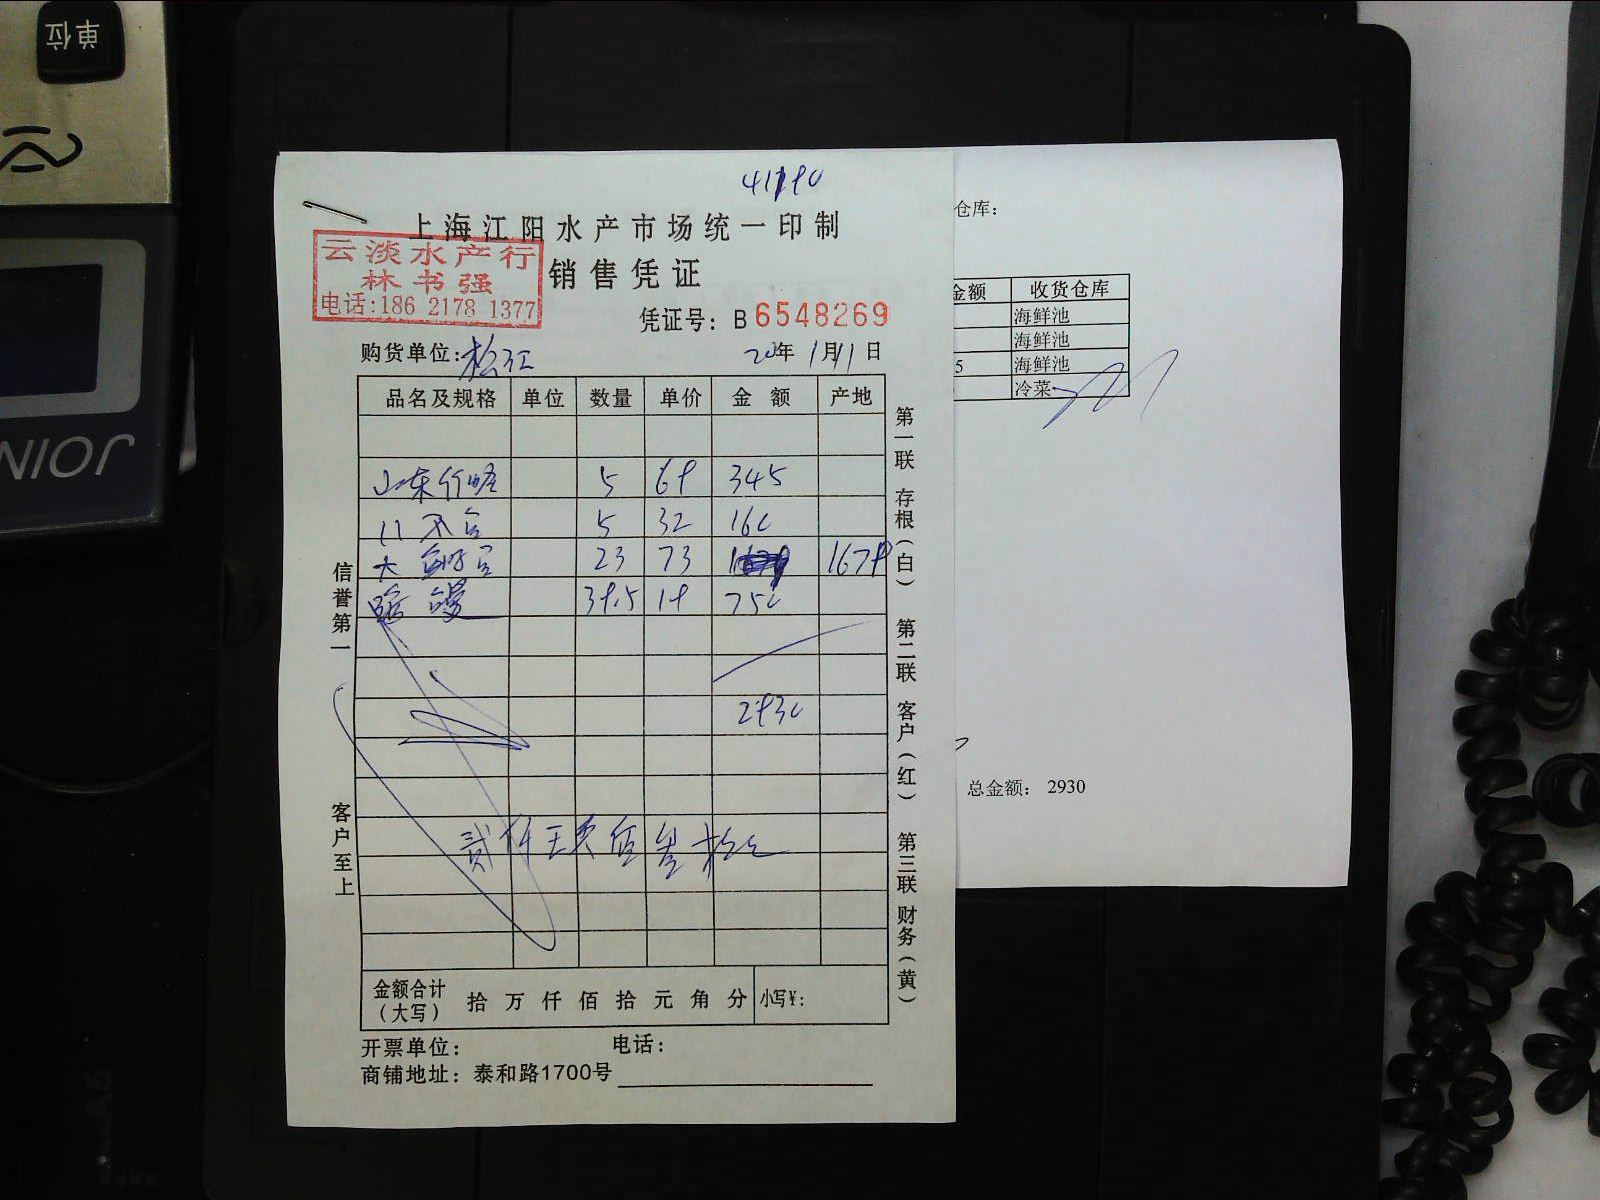 单位
JOIN
41190
上海江阳水产市场统一印制
云淡水产行
林书强
电话:186 2178 1377
销售凭证
凭证号: B 6548269
购货单位: 松江 20年 1月11日
品名及规格 单位 数量 单价 金额 产地
山东 5 69 345
5 32 160
大 23 73 1679
39.5 19 750
2930
贰仟
金额合计(大写) 拾万仟佰拾元角分 小写¥:
开票单位: 电话:
商铺地址: 泰和路1700号
信誉第一
客户至上
第一联 存根(白) 第二联 客户(红) 第三联 财务(黄)
仓库:
金额 收货仓库
海鲜池
海鲜池
5 海鲜池
冷菜
总金额: 2930